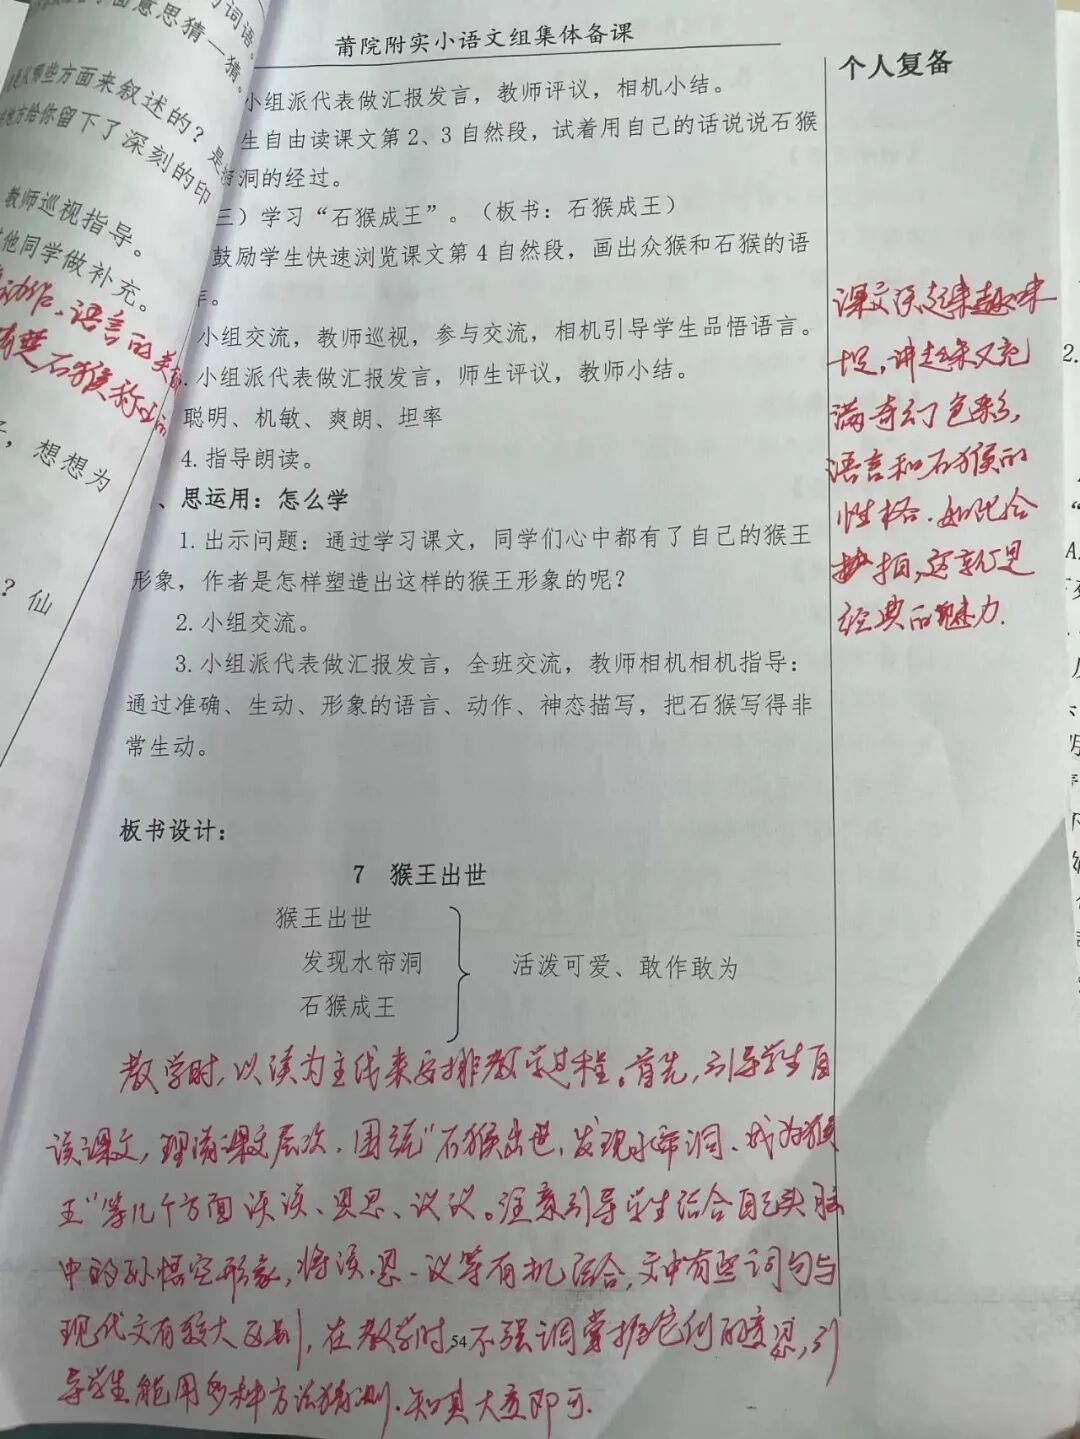 莆院附实小语文组集体备课
个人复备
小组派代表做汇报发言，教师评议，相机小结。
生自由读课文第2、3自然段，试着用自己的话说说石猴
洞的经过。
三）学习“石猴成王”。（板书：石猴成王）
鼓励学生快速浏览课文第4自然段，画出众猴和石猴的语
小组交流，教师巡视，参与交流，相机引导学生品悟语言。
小组派代表做汇报发言，师生评议，教师小结。
聪明、机敏、爽朗、坦率
4.指导朗读。
、思运用：怎么学
1.出示问题：通过学习课文，同学们心中都有了自己的猴王
形象，作者是怎样塑造出这样的猴王形象的呢？
2.小组交流。
3.小组派代表做汇报发言，全班交流，教师相机相机指导：
通过准确、生动、形象的语言、动作、神态描写，把石猴写得非
常生动。
板书设计：
7 猴王出世
猴王出世
发现水帘洞
石猴成王
活泼可爱、敢作敢为
教学时，以读为主线来安排教学过程。首先，引导学生自
读课文，理清课文层次，围绕“石猴出世、发现水帘洞、成为猴
王”等几个方面读读、思思、议议。注意引导学生结合自己头脑
中的孙悟空形象，将读、思、议等有机结合，文中有些词句与
现代文有较大区别，在教学时，不强调掌握它们的意思，引
导学生能用多种方法猜测，知其大意即可.
54
课文读起来趣味
十足，讲起来又充
满奇幻色彩，
语言和石猴的
性格，如此合
拍，这就是
经典的魅力.
词语。
面意思猜一猜。
些方面来叙述的？
地方给你留下了深刻的印
教师巡视指导。
他同学做补充。
动作、语言的
石猴称王
，想想为
？仙
2.